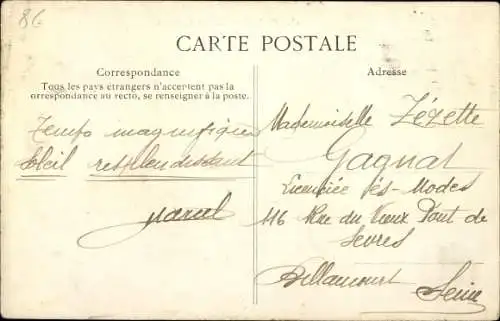 86
CARTE POSTALE
Correspondance
Tous les pays étrangers n'acceptent pas la
correspondance au recto, se renseigner à la poste.
Adresse
Temps magnifique
Soleil resplendissant
Marcel
Mademoiselle Zézette
Gagnat
Licenciée ès-Modes
116 Rue du Vieux Pont de
Sevres
Billancourt
Seine